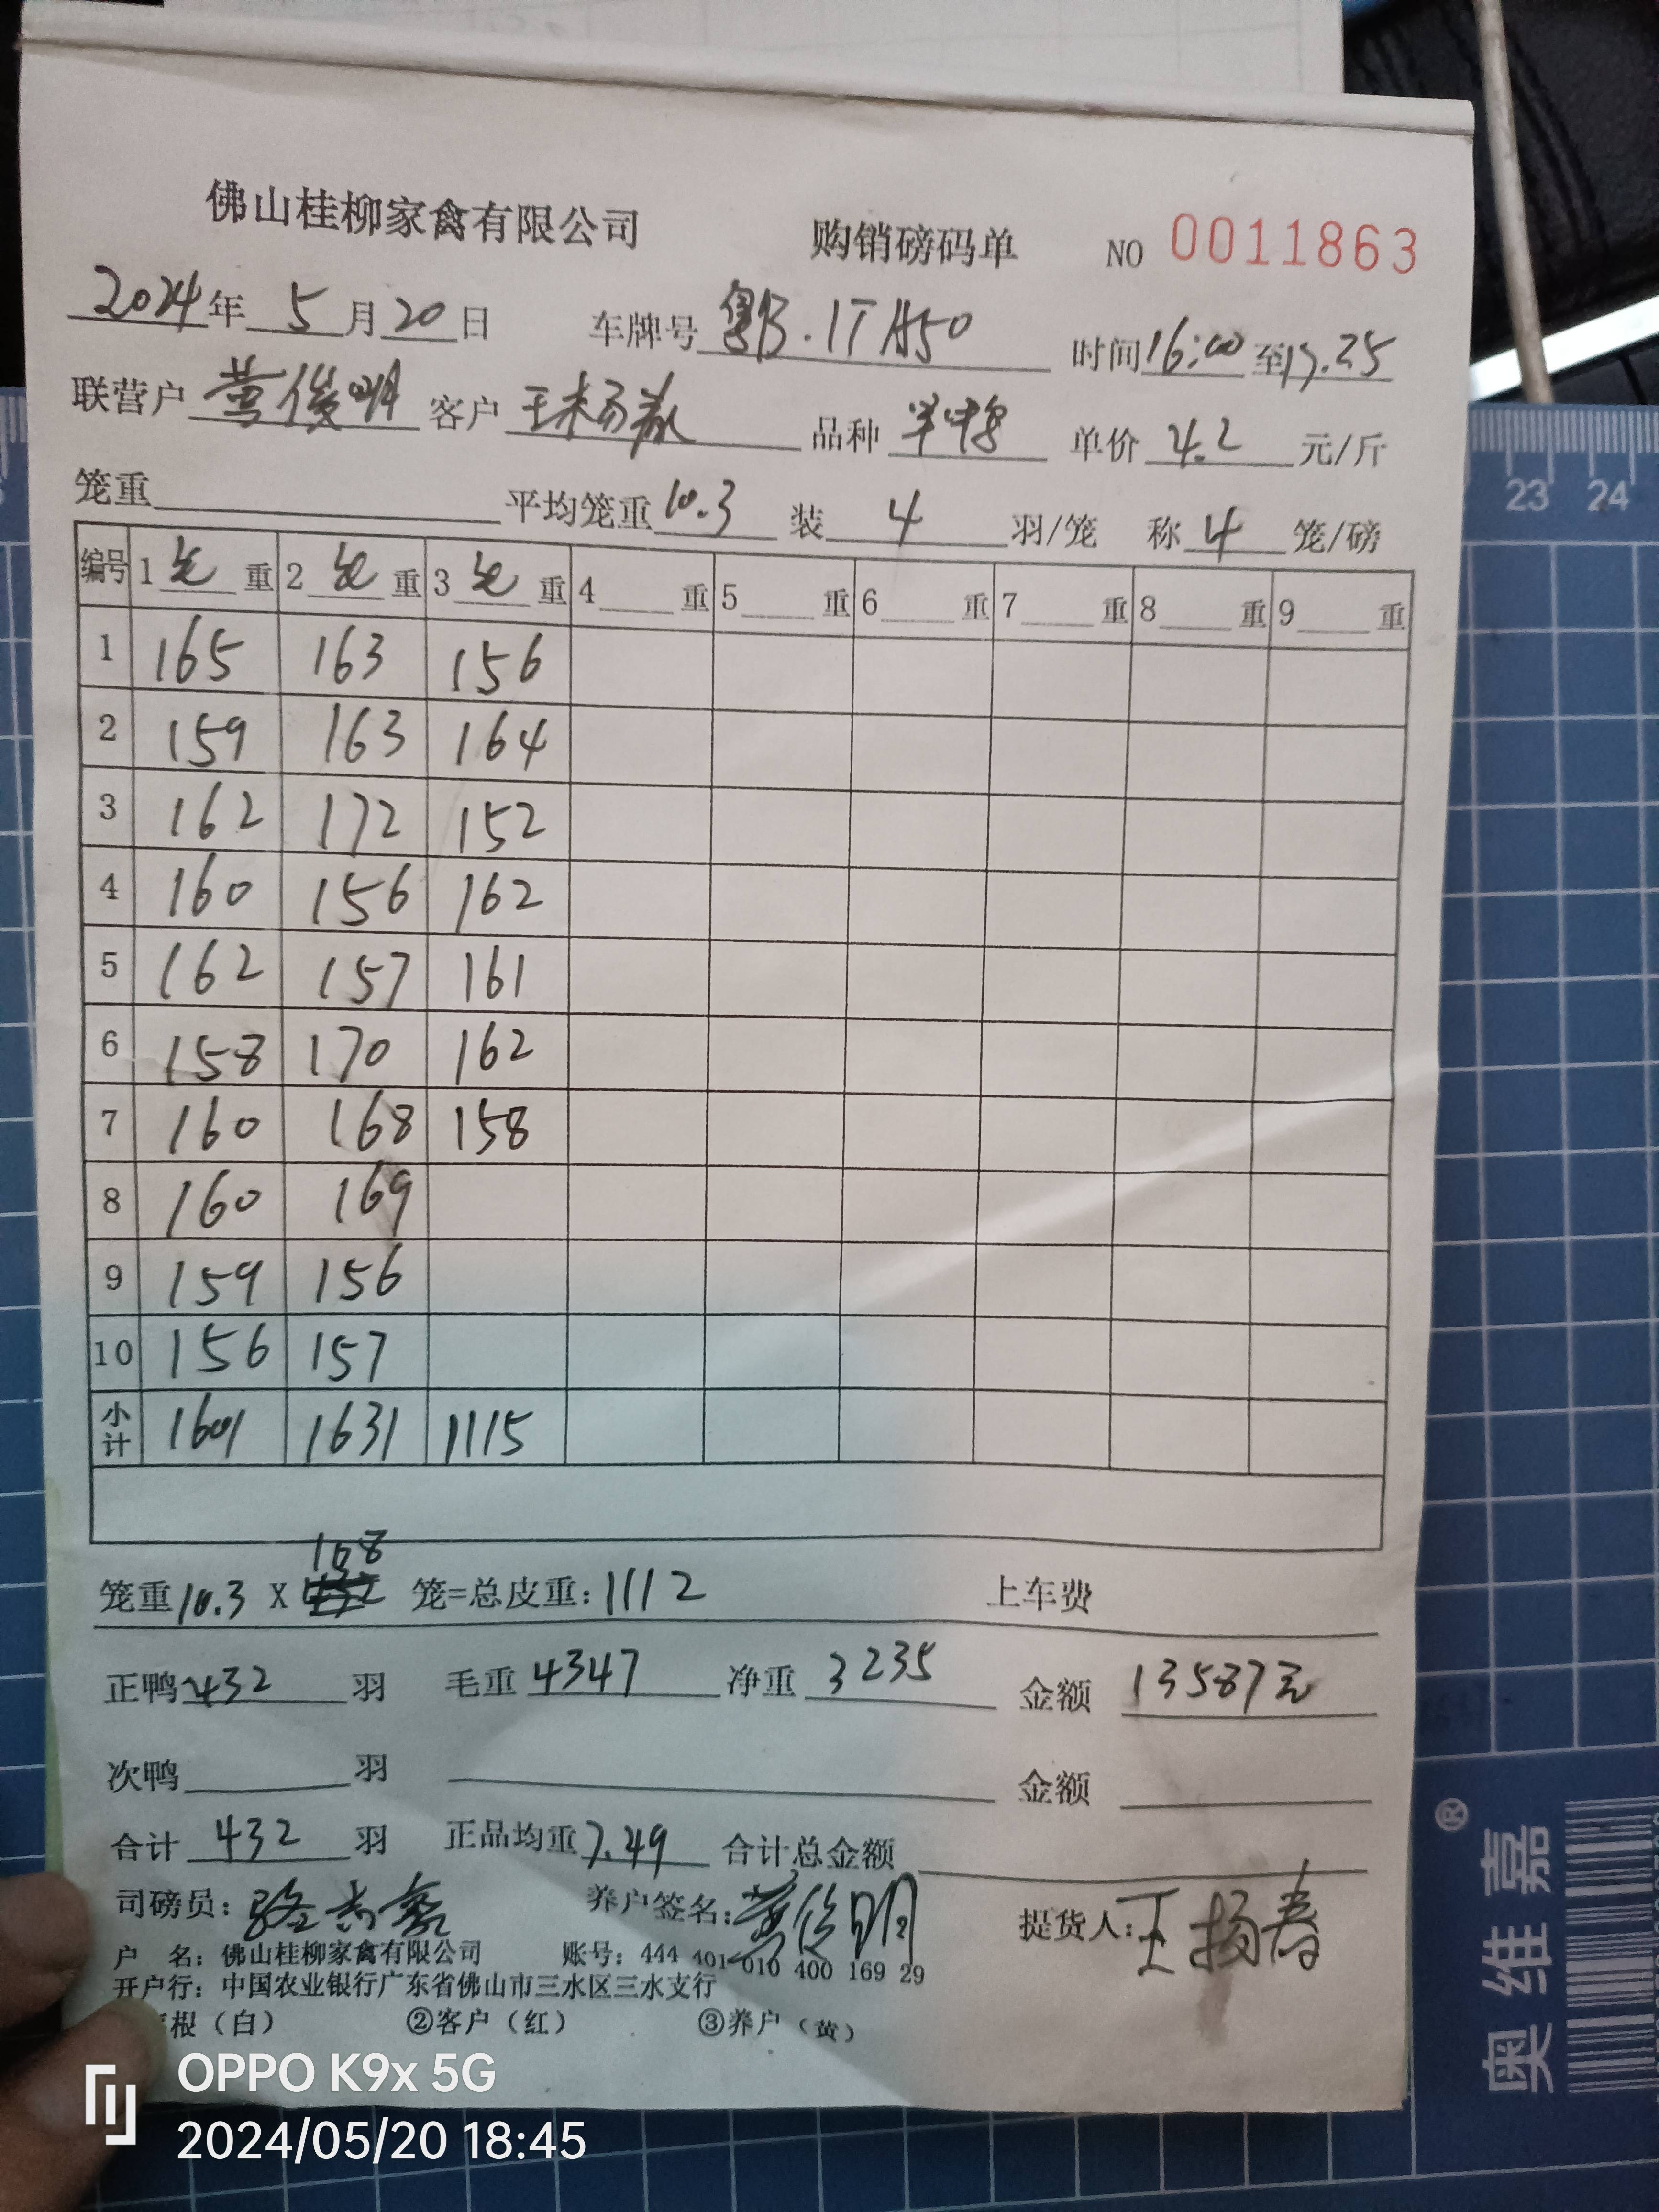 佛山桂柳家禽有限公司 购销磅码单 NO 0011863
2024年 5 月 20 日 车牌号 粤B.1TA50 时间 16:00 至 17.25
联营户 黄俊明 客户 王扬春 品种 单价 4.2 元/斤
笼重 平均笼重 10.3 装 4 羽/笼 称 4 笼/磅
编号 1 毛 重 2 毛 重 3 毛 重 4 重 5 重 6 重 7 重 8 重 9 重
1 165 163 156
2 159 163 164
3 162 172 152
4 160 156 162
5 162 157 161
6 158 170 162
7 160 168 158
8 160 169
9 159 156
10 156 157
小计 1601 1631 1115
108
笼重 10.3 X 笼=总皮重: 1112 上车费
正鸭 432 羽 毛重 4347 净重 3235 金额 13587元
次鸭 羽 金额
合计 432 羽 正品均重 7.49 合计总金额
司磅员: 养户签名: 黄俊明 提货人: 王扬春
户 名: 佛山桂柳家禽有限公司 账号: 444 401 010 400 169 29
开户行: 中国农业银行广东省佛山市三水区三水支行
根（白） ②客户（红） ③养户（黄）
OPPO K9x 5G
2024/05/20 18:45
23 24
奥维嘉®